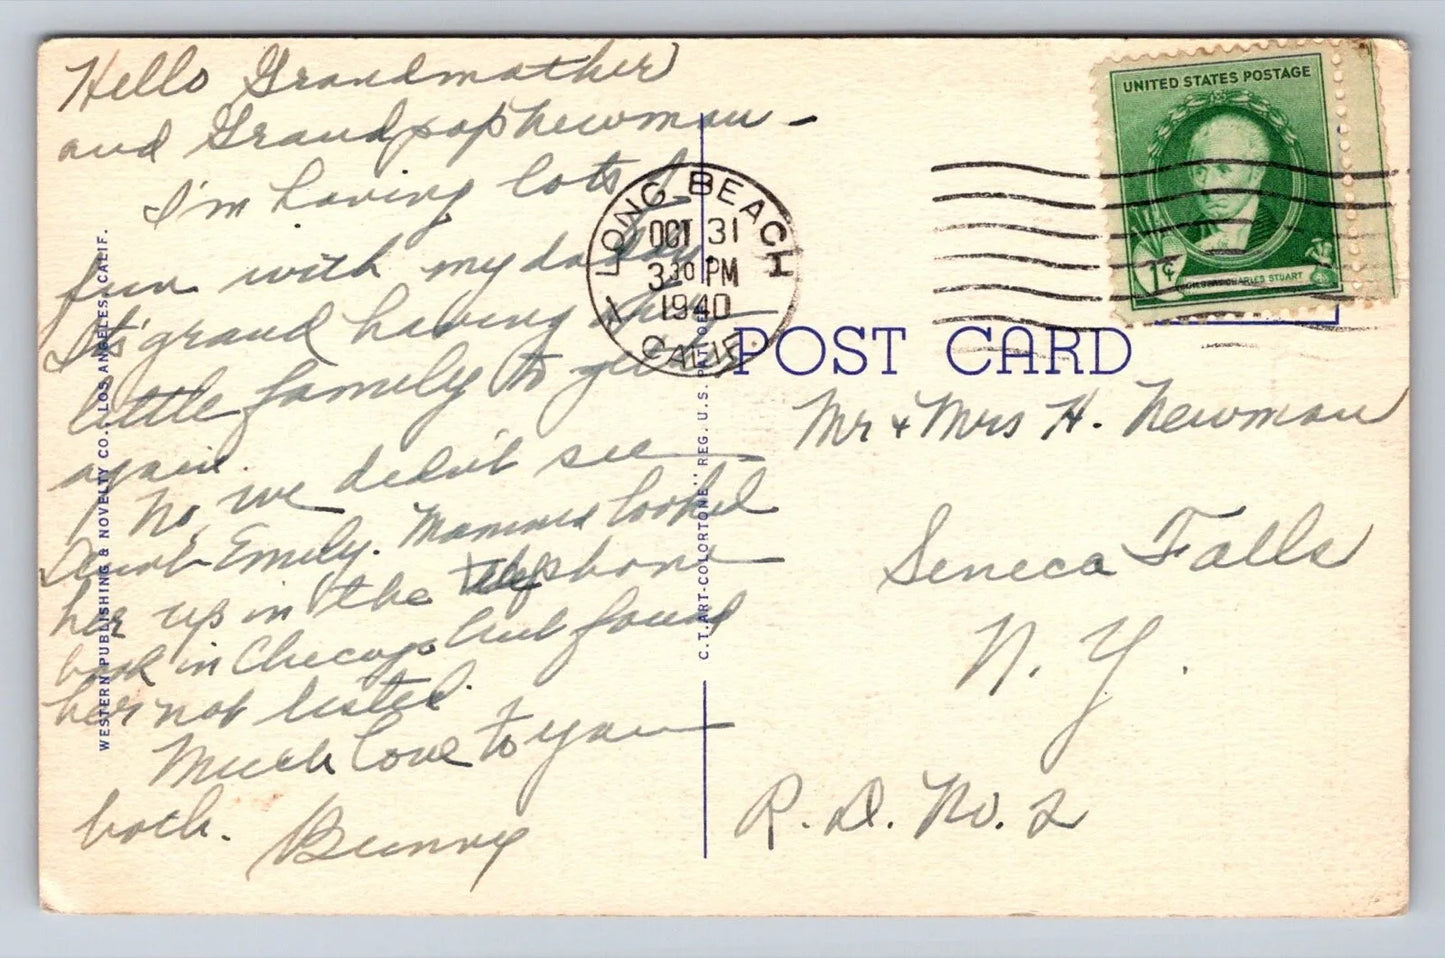 Hello Grandmother
and Grandpop Newman -
I'm having lots of
fun with my daddy.
It's grand having my
little family together
again.
No, we didn't see
Aunt Emily. Mamma looked
her up in the telephone
book in Chicago but found
her not listed.
Much love to you
both. Bunny
WESTERN PUBLISHING & NOVELTY CO., LOS ANGELES, CALIF.
C.T. ART-COLORTONE" REG. U.S. PAT. OFF.
LONG BEACH
OCT 31
3 30 PM
1940
CALIF.
1
UNITED STATES POSTAGE
1¢
GILBERT CHARLES STUART
POST CARD
Mr & Mrs H. Newman
Seneca Falls
N. Y.
R. D. No. 2